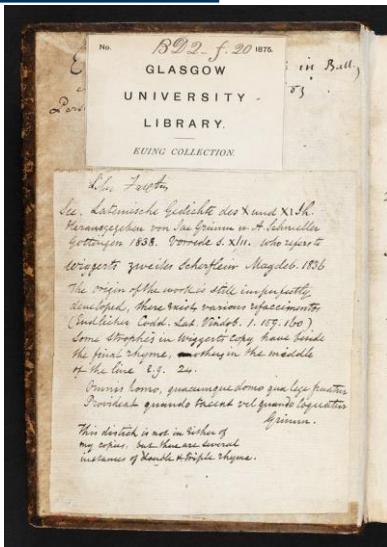 No. BD2-f.20 1875.
GLASGOW
UNIVERSITY
LIBRARY.
EUING COLLECTION.
in Bull,
See. Lateinische Gedichte des X und XI Jh.
Herausgegeben von Jac Grimm u. A. Schmeller
Gottingen 1838. Vorrede S. XIII. who refers to
Wiggerts zweites Scherflein Magdeb. 1836
The origin of the work is still imperfectly
developed, there exist various rifaccimentos
(Endlicher Codd. Lat. Vindob. 1. 159. 160)
Some strophes in Wiggerts copy have beside
the final rhyme, another in the middle
of the line E.g. 24.
Omnis homo, quacumque domo qua lege fruatur
Provideat quando taceat vel quando loquatur
Grimm.
This distich is not in either of
my copies. but there are several
instances of double & triple rhyme.